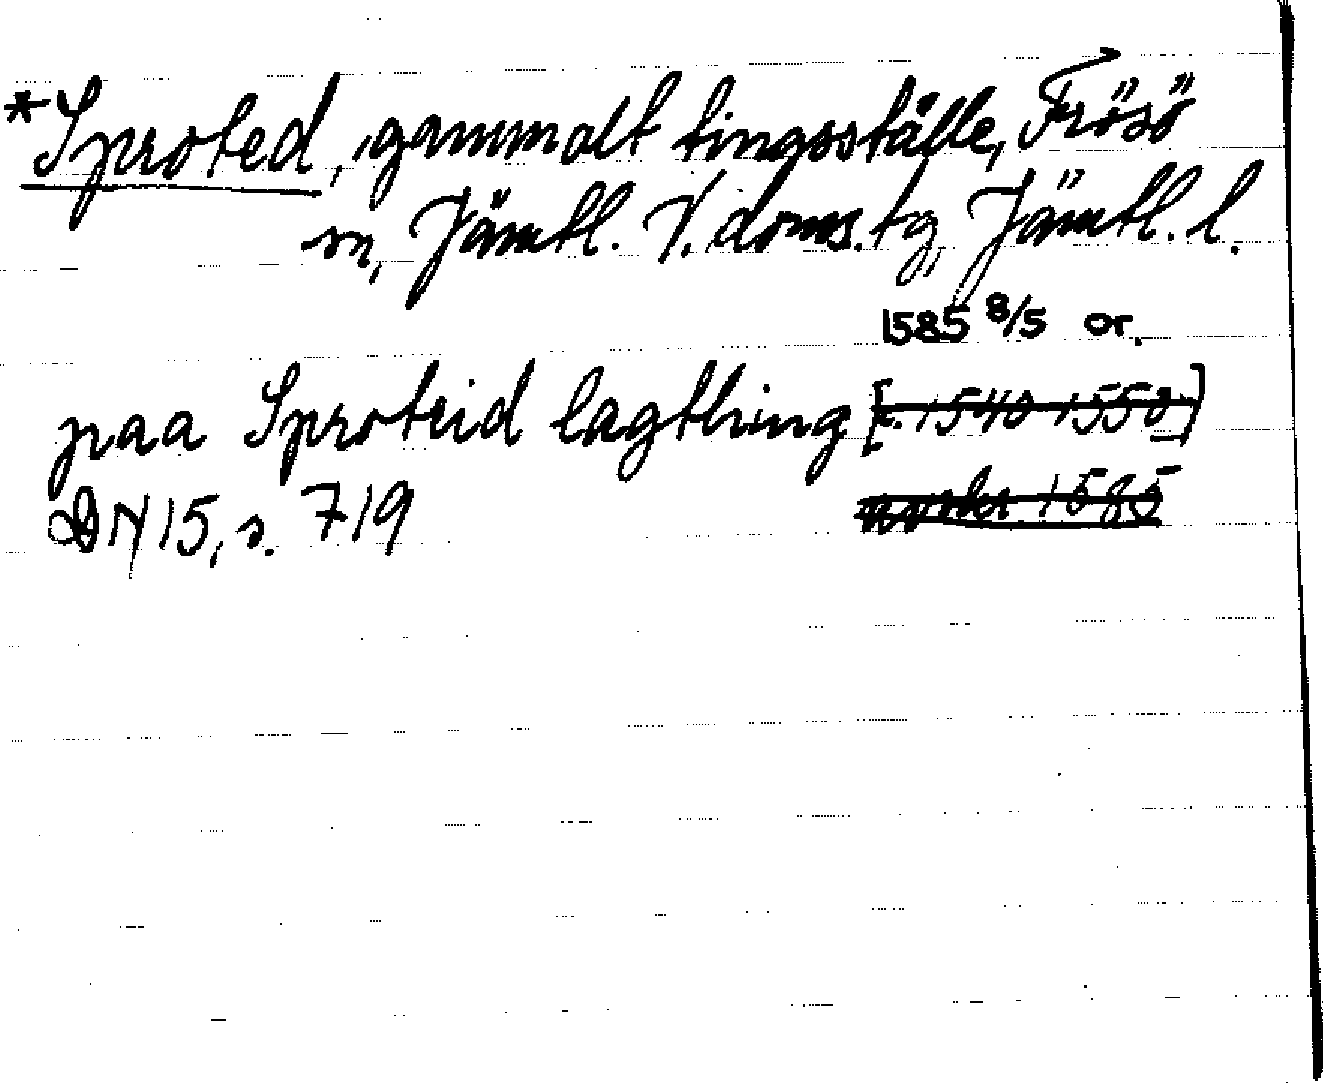 *Sproted, gammalt tingsställe, Frösö
sn, Jämtl. V. doms. tg, Jämtl. l.
1585 8/5 or.
paa Sproteid lagthing [c. 1540-1550]
DN 15, s. 719 1585